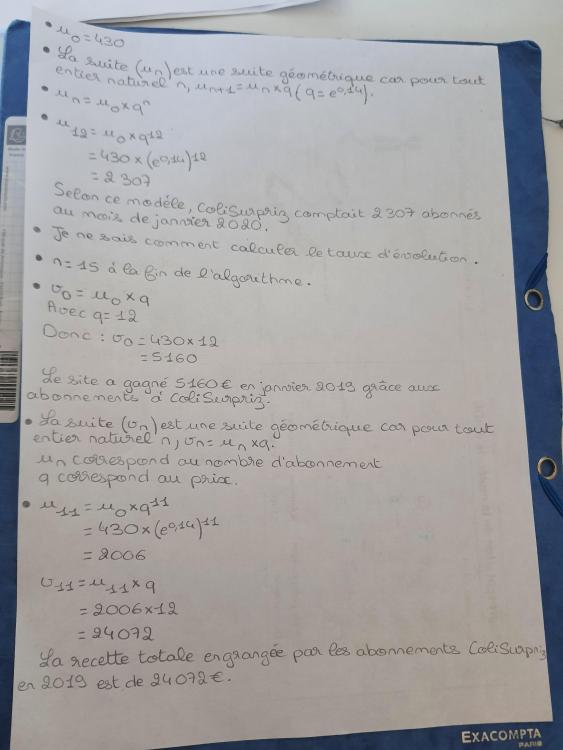 • u₀ = 430
• La suite (uₙ) est une suite géométrique car pour tout
entier naturel n, uₙ₊₁ = uₙ × q (q = e^0,14).
• uₙ = u₀ × qⁿ
• u₁₂ = u₀ × q^12
= 430 × (e^0,14)^12
= 2 307
Selon ce modéle, ColiSurpriz comptait 2 307 abonnés
au mois de janvier 2020.
• Je ne sais comment calculer le taux d'évolution.
• n = 15 à la fin de l'algorithme.
• v₀ = u₀ × q
Avec q = 12
Donc : v₀ = 430 × 12
= 5160
Le site a gagné 5160€ en janvier 2019 grâce aux
abonnements à ColiSurpriz.
• La suite (vₙ) est une suite géométrique car pour tout
entier naturel n, vₙ = uₙ × q.
uₙ correspond au nombre d'abonnement
q correspond au prix.
• u₁₁ = u₀ × q^11
= 430 × (e^0,14)^11
= 2006
v₁₁ = u₁₁ × q
= 2006 × 12
= 24072
La recette totale engrangée par les abonnements ColiSurpriz
en 2019 est de 24072€.
EXACOMPTA
PARIS